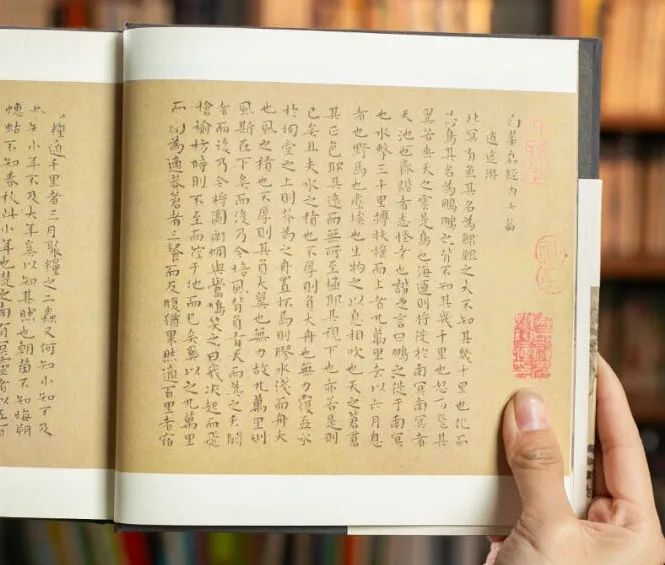 南華真經內七篇
逍遙游
北冥有魚其名為鯤鯤之大不知其幾千里也化而
為鳥其名為鵬鵬之背不知其幾千里也怒而飛其
翼若垂天之雲是鳥也海運則將徙於南冥南冥者
天池也齊諧者志怪者也諧之言曰鵬之徙于南冥
也水擊三千里摶扶搖而上者九萬里去以六月息
者也野馬也塵埃也生物之以息相吹也天之蒼蒼
其正色耶其遠而無所至極耶其視下也亦若是則
已矣且夫水之積也不厚則負大舟也無力覆盃水
於坳堂之上則芥為之舟置杯焉則膠水淺而舟大
也風之積也不厚則其負大翼也無力故九萬里則
風斯在下矣而後乃今培風背負青天而莫之夭閼
者而後乃今將圖南蜩與鷽鳩笑之曰我決起而飛
槍榆枋時則不至而控于地而已矣奚以之九萬里
而南為適莽蒼者三餐而反腹猶果然適百里者宿
糧適千里者三月聚糧之二蟲又何知小知不及
大知小年不及大年奚以知其然也朝菌不知晦朔
蟪蛄不知春秋此小年也楚之南有冥靈者以五百